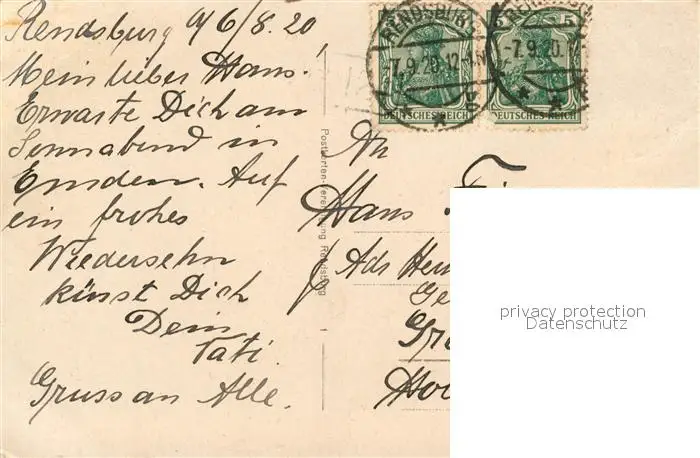 Rendsburg 6/8.20
Mein lieber Hans!
Erwarte Dich am
Sonnabend in
Emden. Auf
ein frohes
Wiedersehn
küsst Dich
Dein
Tati.
Gruss an Alle.
Postkarten-Vereinigung Rendsburg
RENDSBURG
7.9.20.12-1N
-7.9.20.12
5
5
DEUTSCHES REICH
DEUTSCHES REICH
An
Hans
Adr
privacy protection
Datenschutz